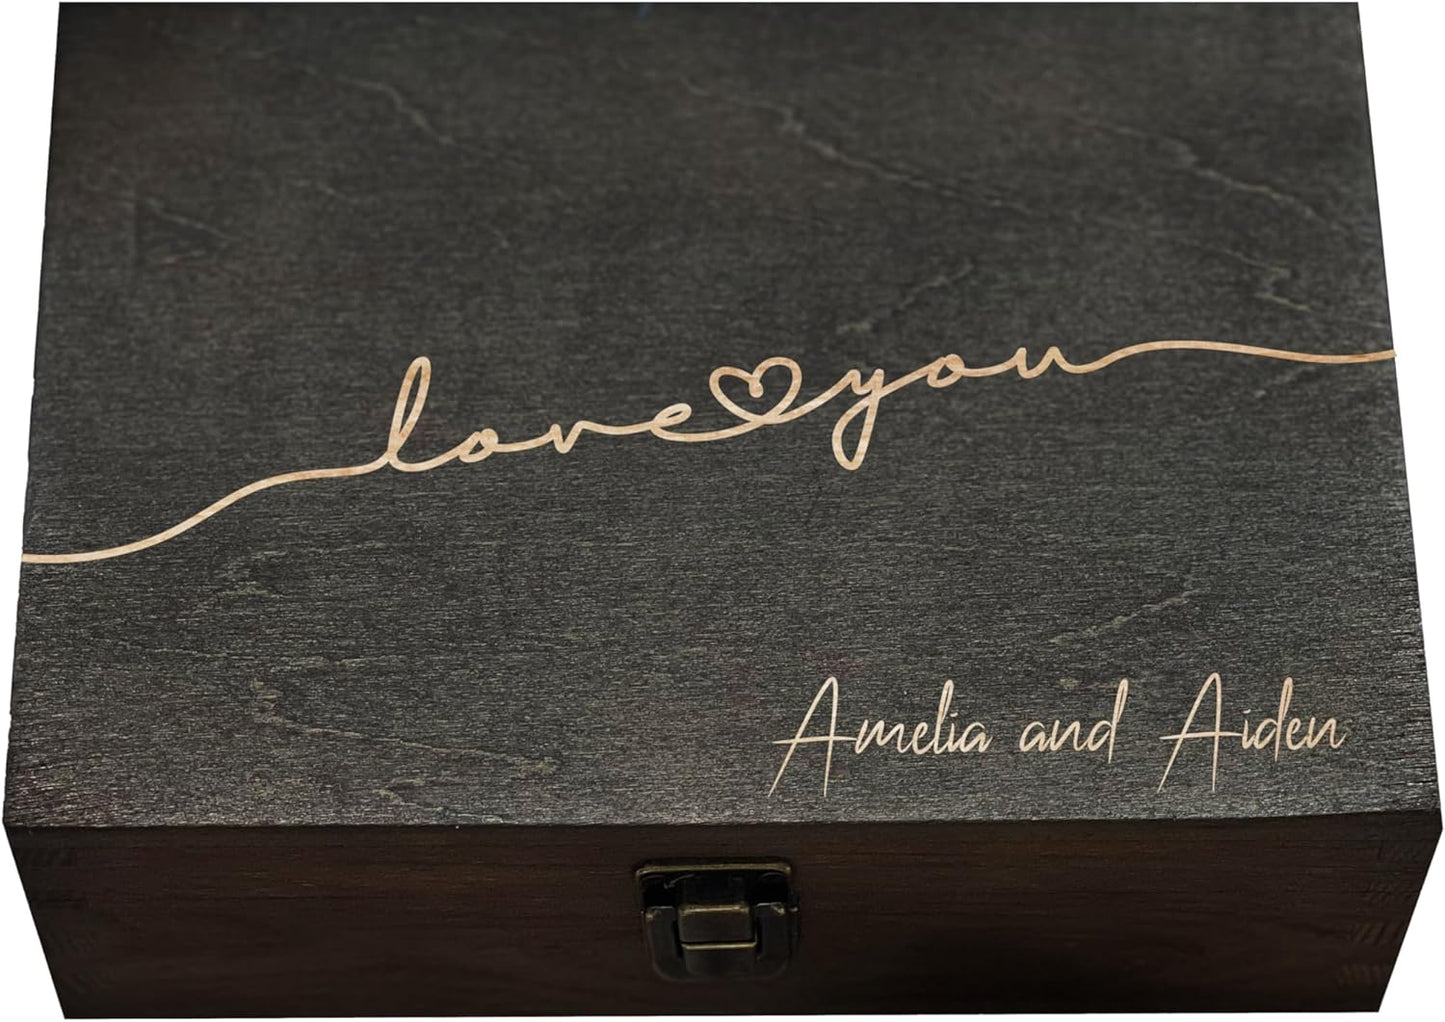 love you
Amelia and Aiden